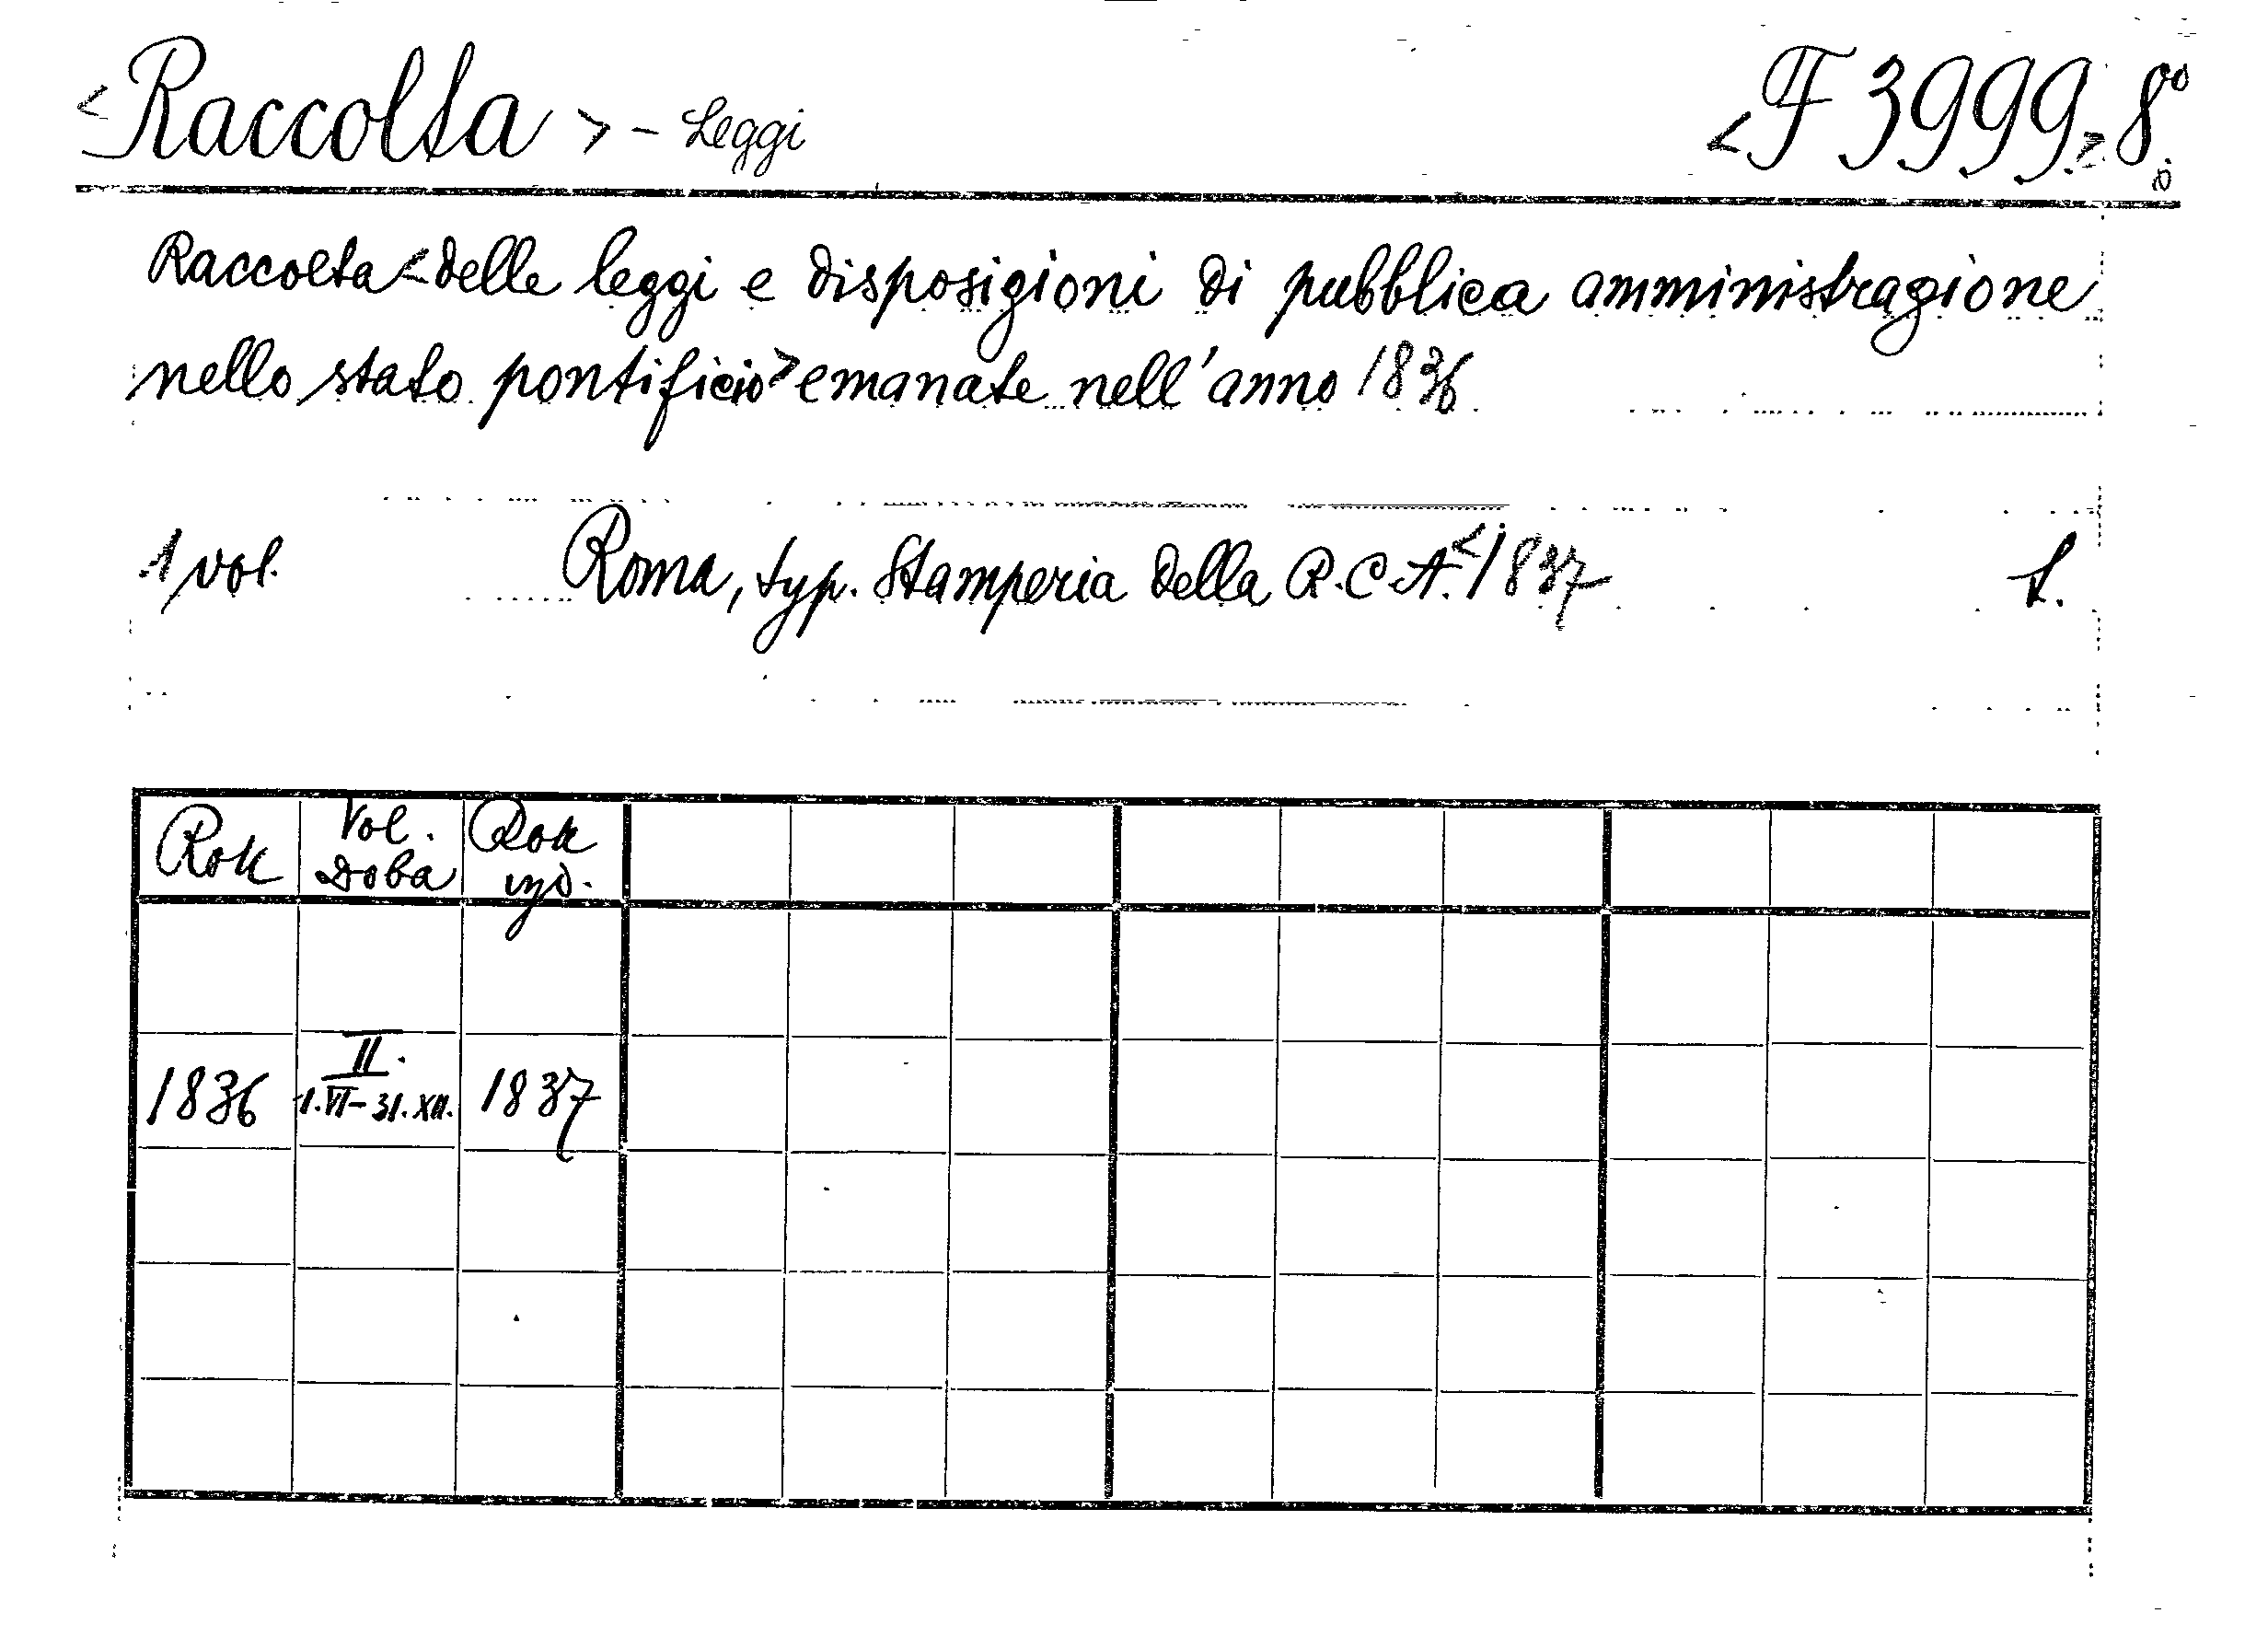 <Raccolta> - Leggi <F 3999.> 8°
Raccolta <delle leggi e disposizioni di pubblica amministrazione
nello stato pontificio> emanate nell'anno 1836
1 vol. Roma, typ. Stamperia della R.C.A. <1837
Rok Vol. Doba Rok vyd.
1836 II. 1.VI-31.XII. 1837